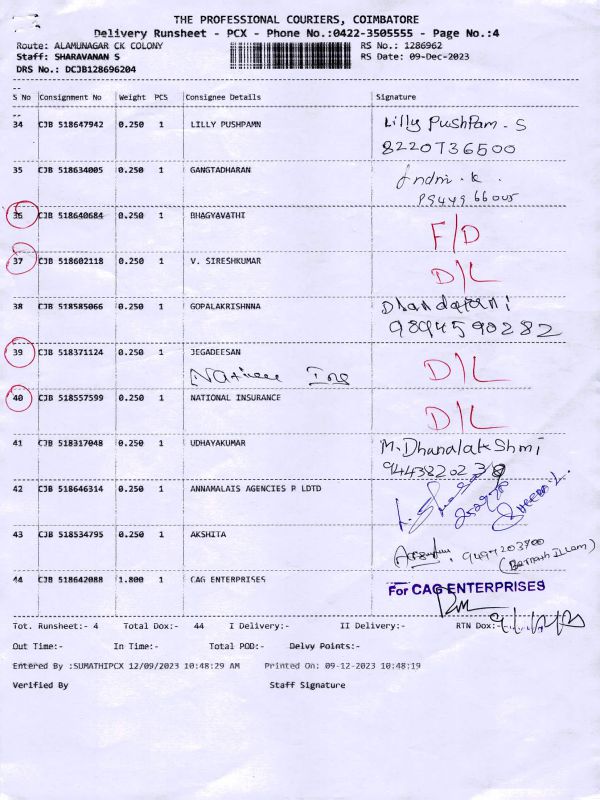 THE PROFESSIONAL COURIERS, COIMBATORE
Delivery Runsheet - PCX - Phone No.:0422-3505555 - Page No.:4
Route: ALAMUNAGAR CK COLONY RS No.: 1286962
Staff: SHARAVANAN S RS Date: 09-Dec-2023
DRS No.: DCJB128696204
S No Consignment No Weight PCS Consignee Details Signature
34 CJB 518647942 0.250 1 LILLY PUSHPAMN Lilly Pushpam - S
8220736500
35 CJB 518634005 0.250 1 GANGTADHARAN
36 CJB 518640684 0.250 1 BHAGYAVATHI F/D
37 CJB 518602118 0.250 1 V. SIRESHKUMAR D/L
38 CJB 518585066 0.250 1 GOPALAKRISHNNA
9894590282
39 CJB 518371124 0.250 1 JEGADEESAN D/L
40 CJB 518557599 0.250 1 NATIONAL INSURANCE D/L
41 CJB 518317048 0.250 1 UDHAYAKUMAR M. Dhanalakshmi
42 CJB 518646314 0.250 1 ANNAMALAIS AGENCIES P LDTD
43 CJB 518534795 0.250 1 AKSHITA
44 CJB 518642088 1.800 1 CAG ENTERPRISES For CAG ENTERPRISES
Tot. Runsheet:- 4 Total Dox:- 44 I Delivery:- II Delivery:- RTN Dox:-
Out Time:- In Time:- Total POD:- Delvy Points:-
Entered By :SUMATHIPCX 12/09/2023 10:48:29 AM Printed On: 09-12-2023 10:48:19
Verified By Staff Signature